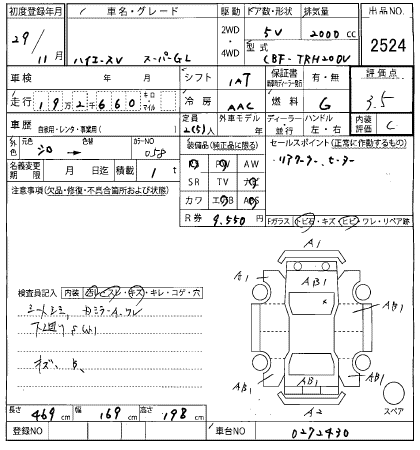 初度登録年月 車名・グレード 駆動 ドア数・形状 排気量 出品NO.
29/11月 ハイエースV スーパーGL 2WD・4WD 5V 2000cc 2524
型式 CBF-TRH200V
車検 年 月 シフト 1AT 保証書 有・無 評価点
走行 19万2千660 キロ・マイル 冷房 AAC 燃料 G 3.5
車歴 自家用・レンタ・事業用( ) 定員 2(5)人 外車モデル 年 ディーラー・並行 ハンドル 左・右 内装評価 C
外色 元色 シロ → 色替 カラーNO 058 装備品(純正品に限る) セールスポイント(正常に作動するもの)
名義変更期限 月 日迄 積載 1t PS PW AW リアクーラー、ヒーター
注意事項(欠品・修復・不具合箇所および状態) SR TV ナビ
カワ エアB ABS
R券 9,550円 Fガラス(トビ石・キズ・ヒビ・ワレ・リペア跡)
A1
検査員記入 内装(汚レ・スレ・キズ・キレ・コゲ・穴)
シートシミ、
下廻りS
キズ、
AB1
AB1
AB1
AB1
AB1
A2
スペア
長さ 469cm 幅 169cm 高さ 198cm
登録NO 車台NO 0272430